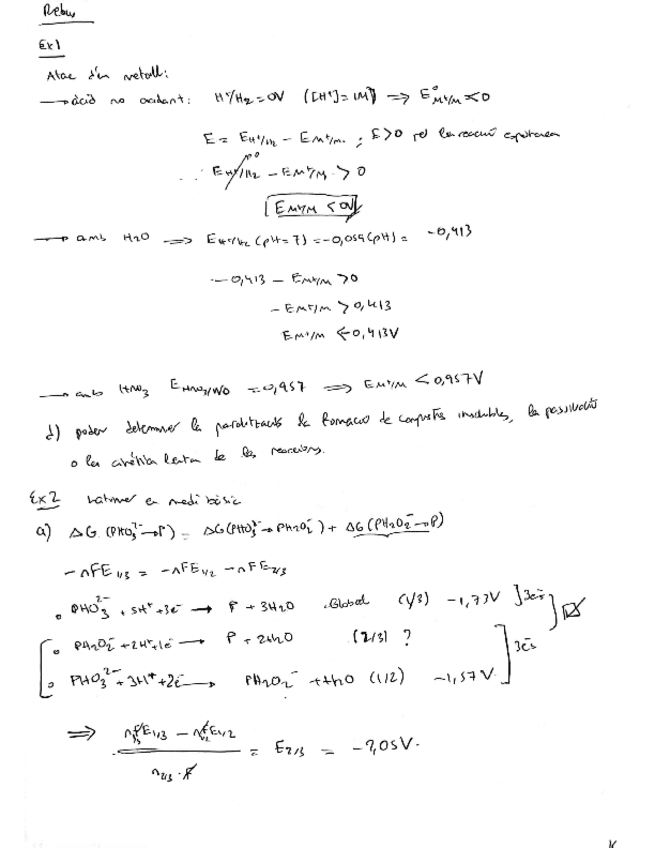 Rebus
Ex1
Atac d'un metall:
→ àcid no oxidant: H⁺/H₂ = 0V ([H⁺] = 1M) ⇒ E°M⁺/M < 0
E = E H⁺/H₂ − E M⁺/M ; E>0 per la reacció espontanea
E H⁺/H₂ − E M⁺/M > 0
E M⁺/M < 0V
→ amb H₂O ⇒ E H⁺/H₂ (pH = 7) = −0,059 (pH) = −0,413
−0,413 − E M⁺/M > 0
− E M⁺/M > 0,413
E M⁺/M < −0,413V
→ amb HNO₃ E HNO₃/NO = 0,957 ⇒ E M⁺/M < 0,957V
d) poder determinar la formació de compostos insolubles, la passivació
o la cinètica lenta de les reaccions.
Ex2 Latimer en medi bàsic
a) ΔG (PHO₃²⁻→P) = ΔG (PHO₃²⁻→PH₂O₂⁻) + ΔG (PH₂O₂⁻→P)
−nFE₁/₃ = −nFE₁/₂ − nFE₂/₃
• PHO₃²⁻ + 5H⁺ + 3e⁻ → P + 3H₂O Global (1/3) −1,73V ] 3e⁻s
• PH₂O₂⁻ + 2H⁺ + 1e⁻ → P + 2H₂O (2/3) ?
• PHO₃²⁻ + 3H⁺ + 2e⁻ → PH₂O₂⁻ + H₂O (1/2) −1,57V ] 3e⁻s
⇒ (n₁/₃FE₁/₃ − n₁/₂FE₁/₂) / (n₂/₃·F) = E₂/₃ = −2,05V.